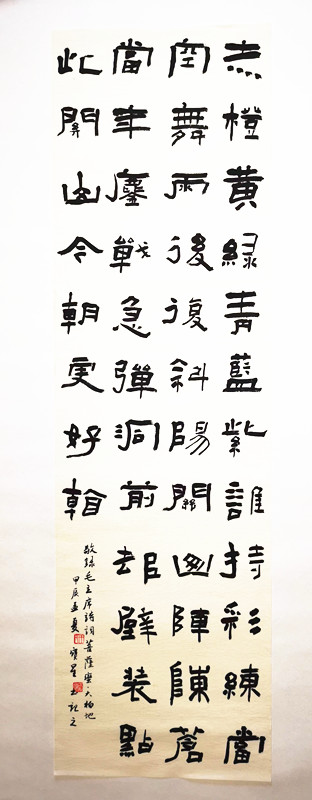 赤橙黃綠青藍紫誰持彩練當
空舞雨後復斜陽關山陣陣蒼
當年鏖戰急彈洞前邨壁裝點
此關山今朝更好看
敬錄毛主席詩詞菩薩蠻·大柏地
甲辰孟夏